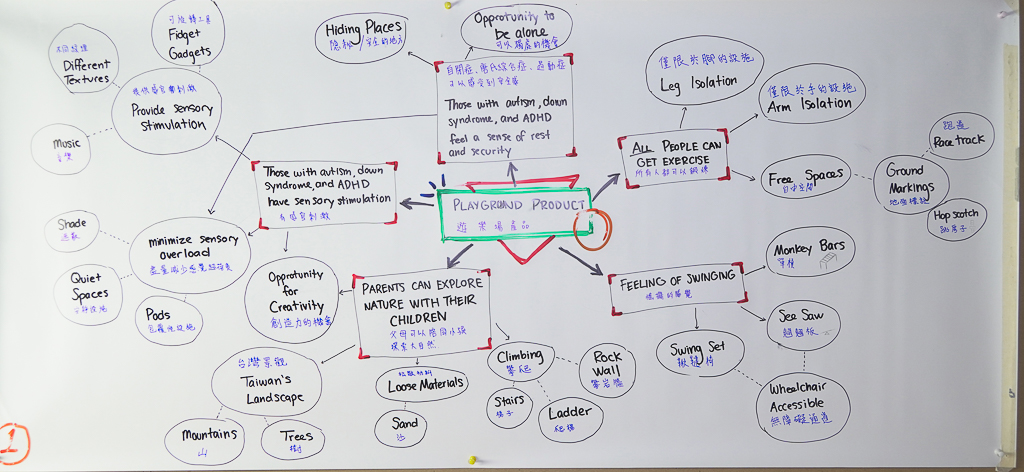 可旋轉工具
Fidget
Gadgets
Different
Textures
提供感官刺激
Provide sensory
stimulation
Music
音樂
Hiding Places
隱祕/安全的地方
Opportunity to
be alone
可以獨處的機會
自閉症、唐氏綜合症、過動症
可以感受到安全感
Those with autism, down
syndrome, and ADHD
feel a sense of rest
and security
僅限於腳的設施
Leg Isolation
僅限於手的設施
Arm Isolation
ALL PEOPLE CAN
GET EXERCISE
所有人都可以鍛鍊
Free Spaces
自由空間
跑道
Race track
Ground
Markings
地面標誌
Hop scotch
跳房子
Those with autism, down
syndrome, and ADHD
have sensory stimulation
有感官刺激
PLAYGROUND PRODUCT
遊樂場產品
Shade
遮蔽
minimize sensory
overload
Quiet
Spaces
Pods
Opportunity
for
Creativity
創造力的機會
PARENTS CAN EXPLORE
NATURE WITH THEIR
CHILDREN
父母可以陪同小孩
探索大自然
FEELING OF SWINGING
搖擺的感覺
Monkey Bars
單槓
See Saw
翹翹板
Swing Set
鞦韆椅
Wheelchair
Accessible
無障礙通道
台灣景觀
Taiwan's
Landscape
Mountains
山
Trees
樹
鬆散材料
Loose Materials
Sand
沙
Climbing
攀爬
Rock
Wall
攀岩牆
Stairs
梯子
Ladder
爬梯
1